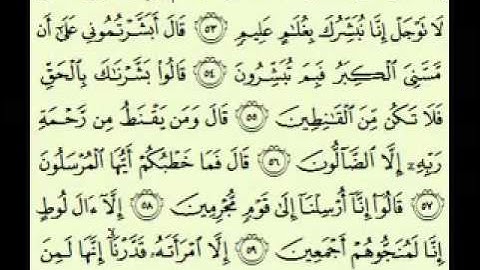 لَا تَوْجَلْ إِنَّا نُبَشِّرُكَ بِغُلَٰمٍ عَلِيمٍ ۝٥٣ قَالَ أَبَشَّرْتُمُونِى عَلَىٰٓ أَن
مَّسَّنِىَ ٱلْكِبَرُ فَبِمَ تُبَشِّرُونَ ۝٥٤ قَالُوا۟ بَشَّرْنَٰكَ بِٱلْحَقِّ
فَلَا تَكُن مِّنَ ٱلْقَٰنِطِينَ ۝٥٥ قَالَ وَمَن يَقْنَطُ مِن رَّحْمَةِ
رَبِّهِۦٓ إِلَّا ٱلضَّآلُّونَ ۝٥٦ قَالَ فَمَا خَطْبُكُمْ أَيُّهَا ٱلْمُرْسَلُونَ
۝٥٧ قَالُوٓا۟ إِنَّآ أُرْسِلْنَآ إِلَىٰ قَوْمٍ مُّجْرِمِينَ ۝٥٨ إِلَّآ ءَالَ لُوطٍ
إِنَّا لَمُنَجُّوهُمْ أَجْمَعِينَ ۝٥٩ إِلَّا ٱمْرَأَتَهُۥ قَدَّرْنَآ ۙ إِنَّهَا لَمِنَ